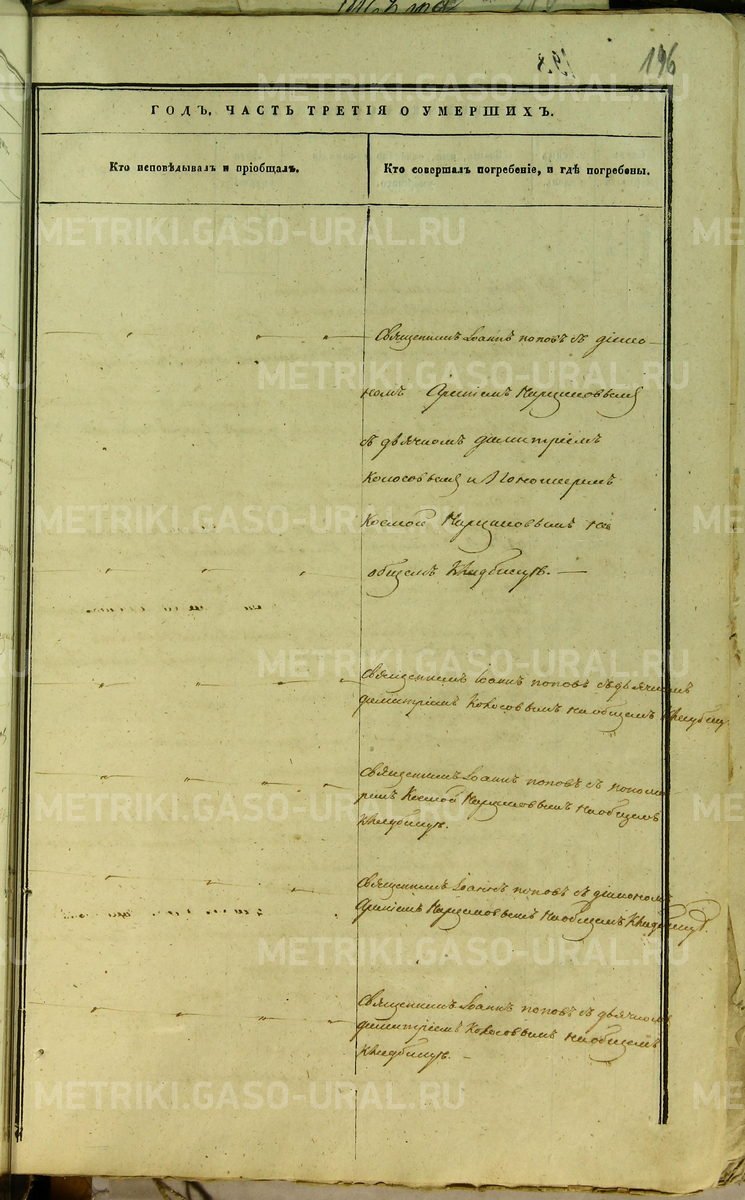 196
ГОДЪ, ЧАСТЬ ТРЕТІЯ О УМЕРШИХЪ.
Кто исповѣдывалъ и пріобщалъ.
Кто совершалъ погребеніе, и гдѣ погребены.
Священникъ Іоаннъ поповъ съ діако-
номъ
съ дьячкомъ димитріемъ
Колосовымъ и Пономаремъ
Космой на
общемъ Кладбищѣ. —
Священникъ Іоаннъ поповъ съ дьячкомъ
димитріемъ Колосовымъ на общемъ кладбищ
Священникъ Іоаннъ поповъ съ понома-
ремъ Космой на общемъ
Кладбищѣ.
Священникъ Іоаннъ поповъ съ діакономъ
на общемъ Кладбищѣ.
Священникъ Іоаннъ поповъ съ дьячкомъ
димитріемъ Колосовымъ на общемъ
Кладбищѣ. —
METRIKI.GASO-URAL.RU